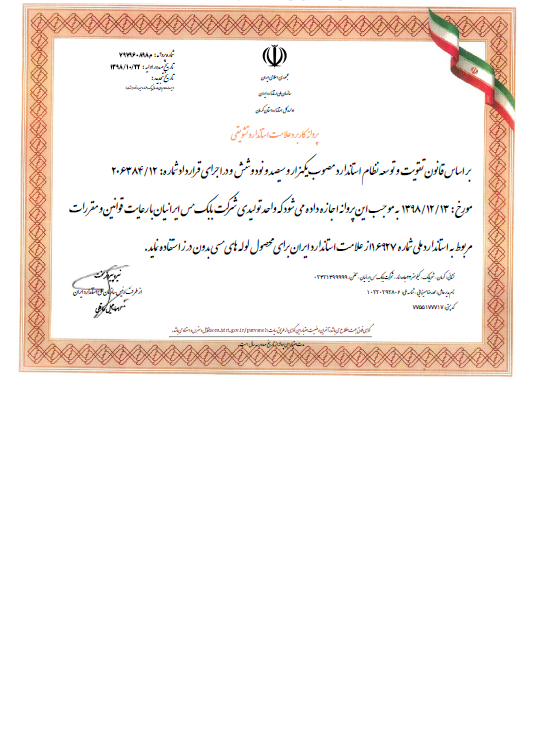 شماره پروانه: م۷۹۷۹۶۰۸۹۸
تاریخ صدور اولیه: ۱۳۹۸/۱۰/۲۲
تاریخ تمدید:
جمهوری اسلامی ایران
سازمان ملی استاندارد ایران
اداره کل استاندارد استان کرمان
پروانه کاربرد علامت استاندارد تشویقی
بر اساس قانون تقویت و توسعه نظام استاندارد مصوب یکهزار و سیصد و نود و شش و در اجرای قرارداد شماره: ۲۰۶۳۸۴/۱۲
مورخ: ۱۳۹۸/۱۲/۱۳ به موجب این پروانه اجازه داده می شود که واحد تولیدی شرکت بابک مس ایرانیان با رعایت قوانین و مقررات
مربوط به استاندارد ملی شماره ۱۶۹۲۷ از علامت استاندارد ایران برای محصول لوله های مسی بدون درز استفاده نماید.
نشانی: کرمان - شهربابک - کیلومتر جاده - شرکت بابک مس ایرانیان - تلفن: ۰۲۳۲۱۳۹۹۹۹۹
نام مدیرعامل: شناسه ملی: ۱۰۲۲۰۲۹۲۸۰۶
کد پستی: ۷۷۵۵۱۷۷۷۱۷
از طرف رئیس سازمان ملی استاندارد ایران